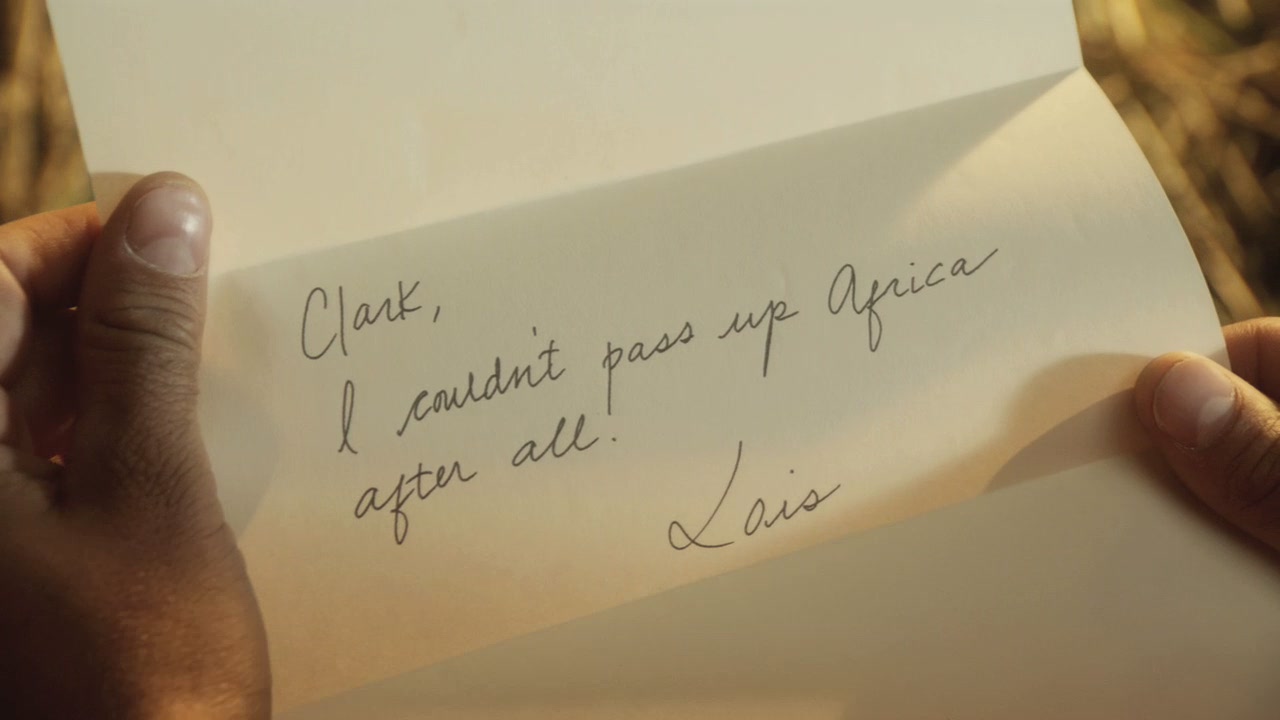 Clark,
I couldn't pass up Africa
after all.
Lois